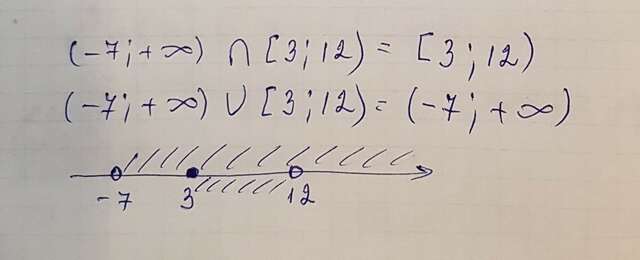 (-7; +∞) ∩ [3; 12) = [3; 12)
(-7; +∞) ∪ [3; 12) = (-7; +∞)
-7 3 12